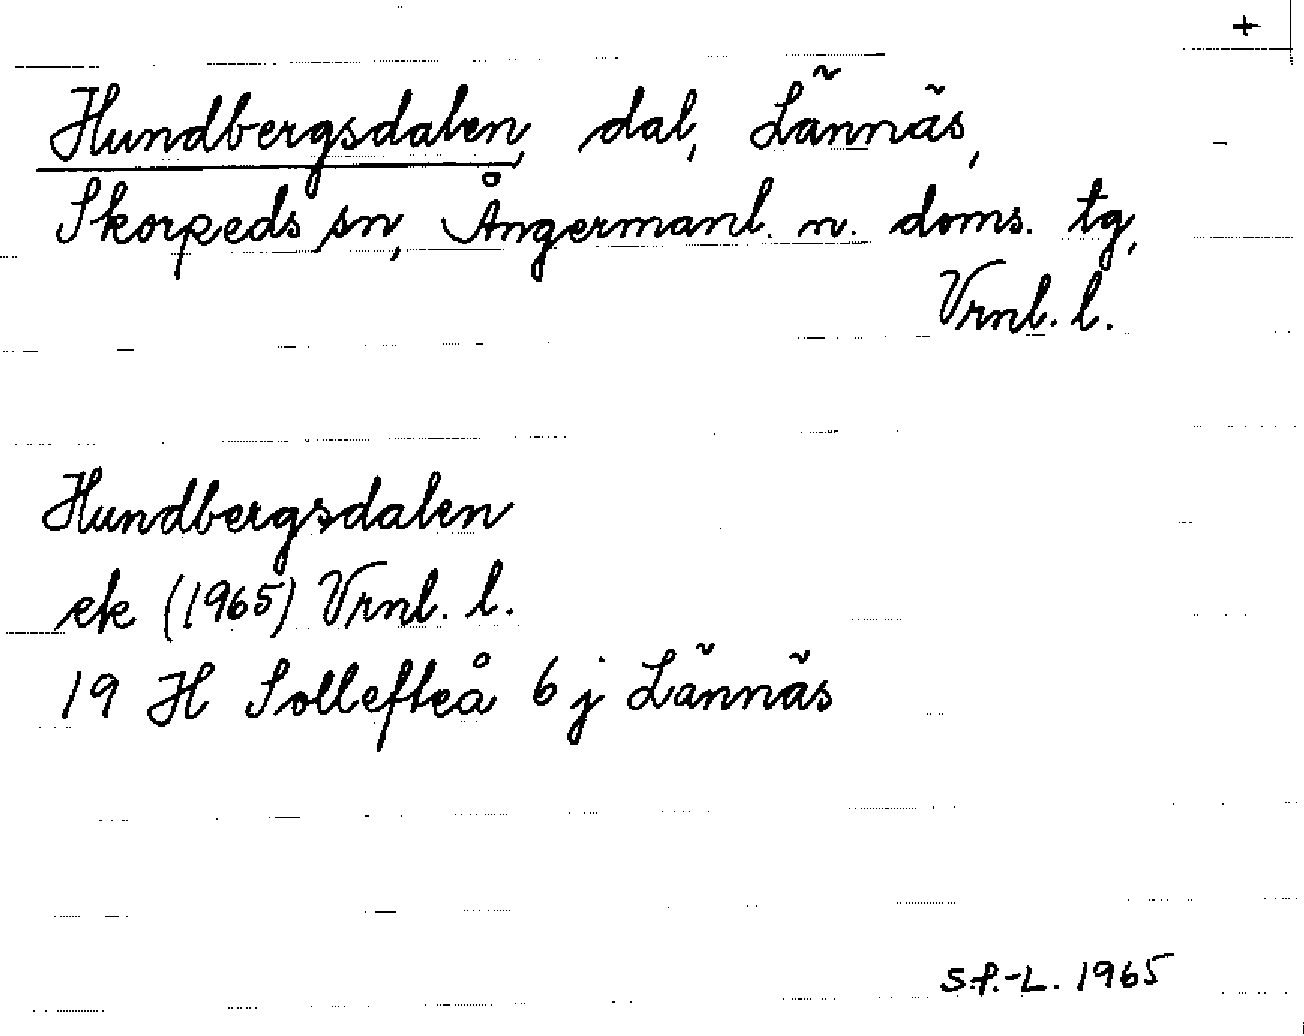 +
Hundbergsdalen, dal, Lännäs,
Skorpeds sn, Ångermanl. n. doms. tg,
Vrnl. l.
Hundbergsdalen
ek (1965) Vrnl. l.
19 H Sollefteå 6 j Lännäs
S.P.-L. 1965